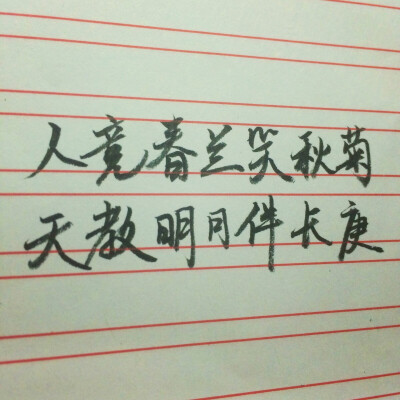 人竟春兰哭秋菊
天教明月件长庚